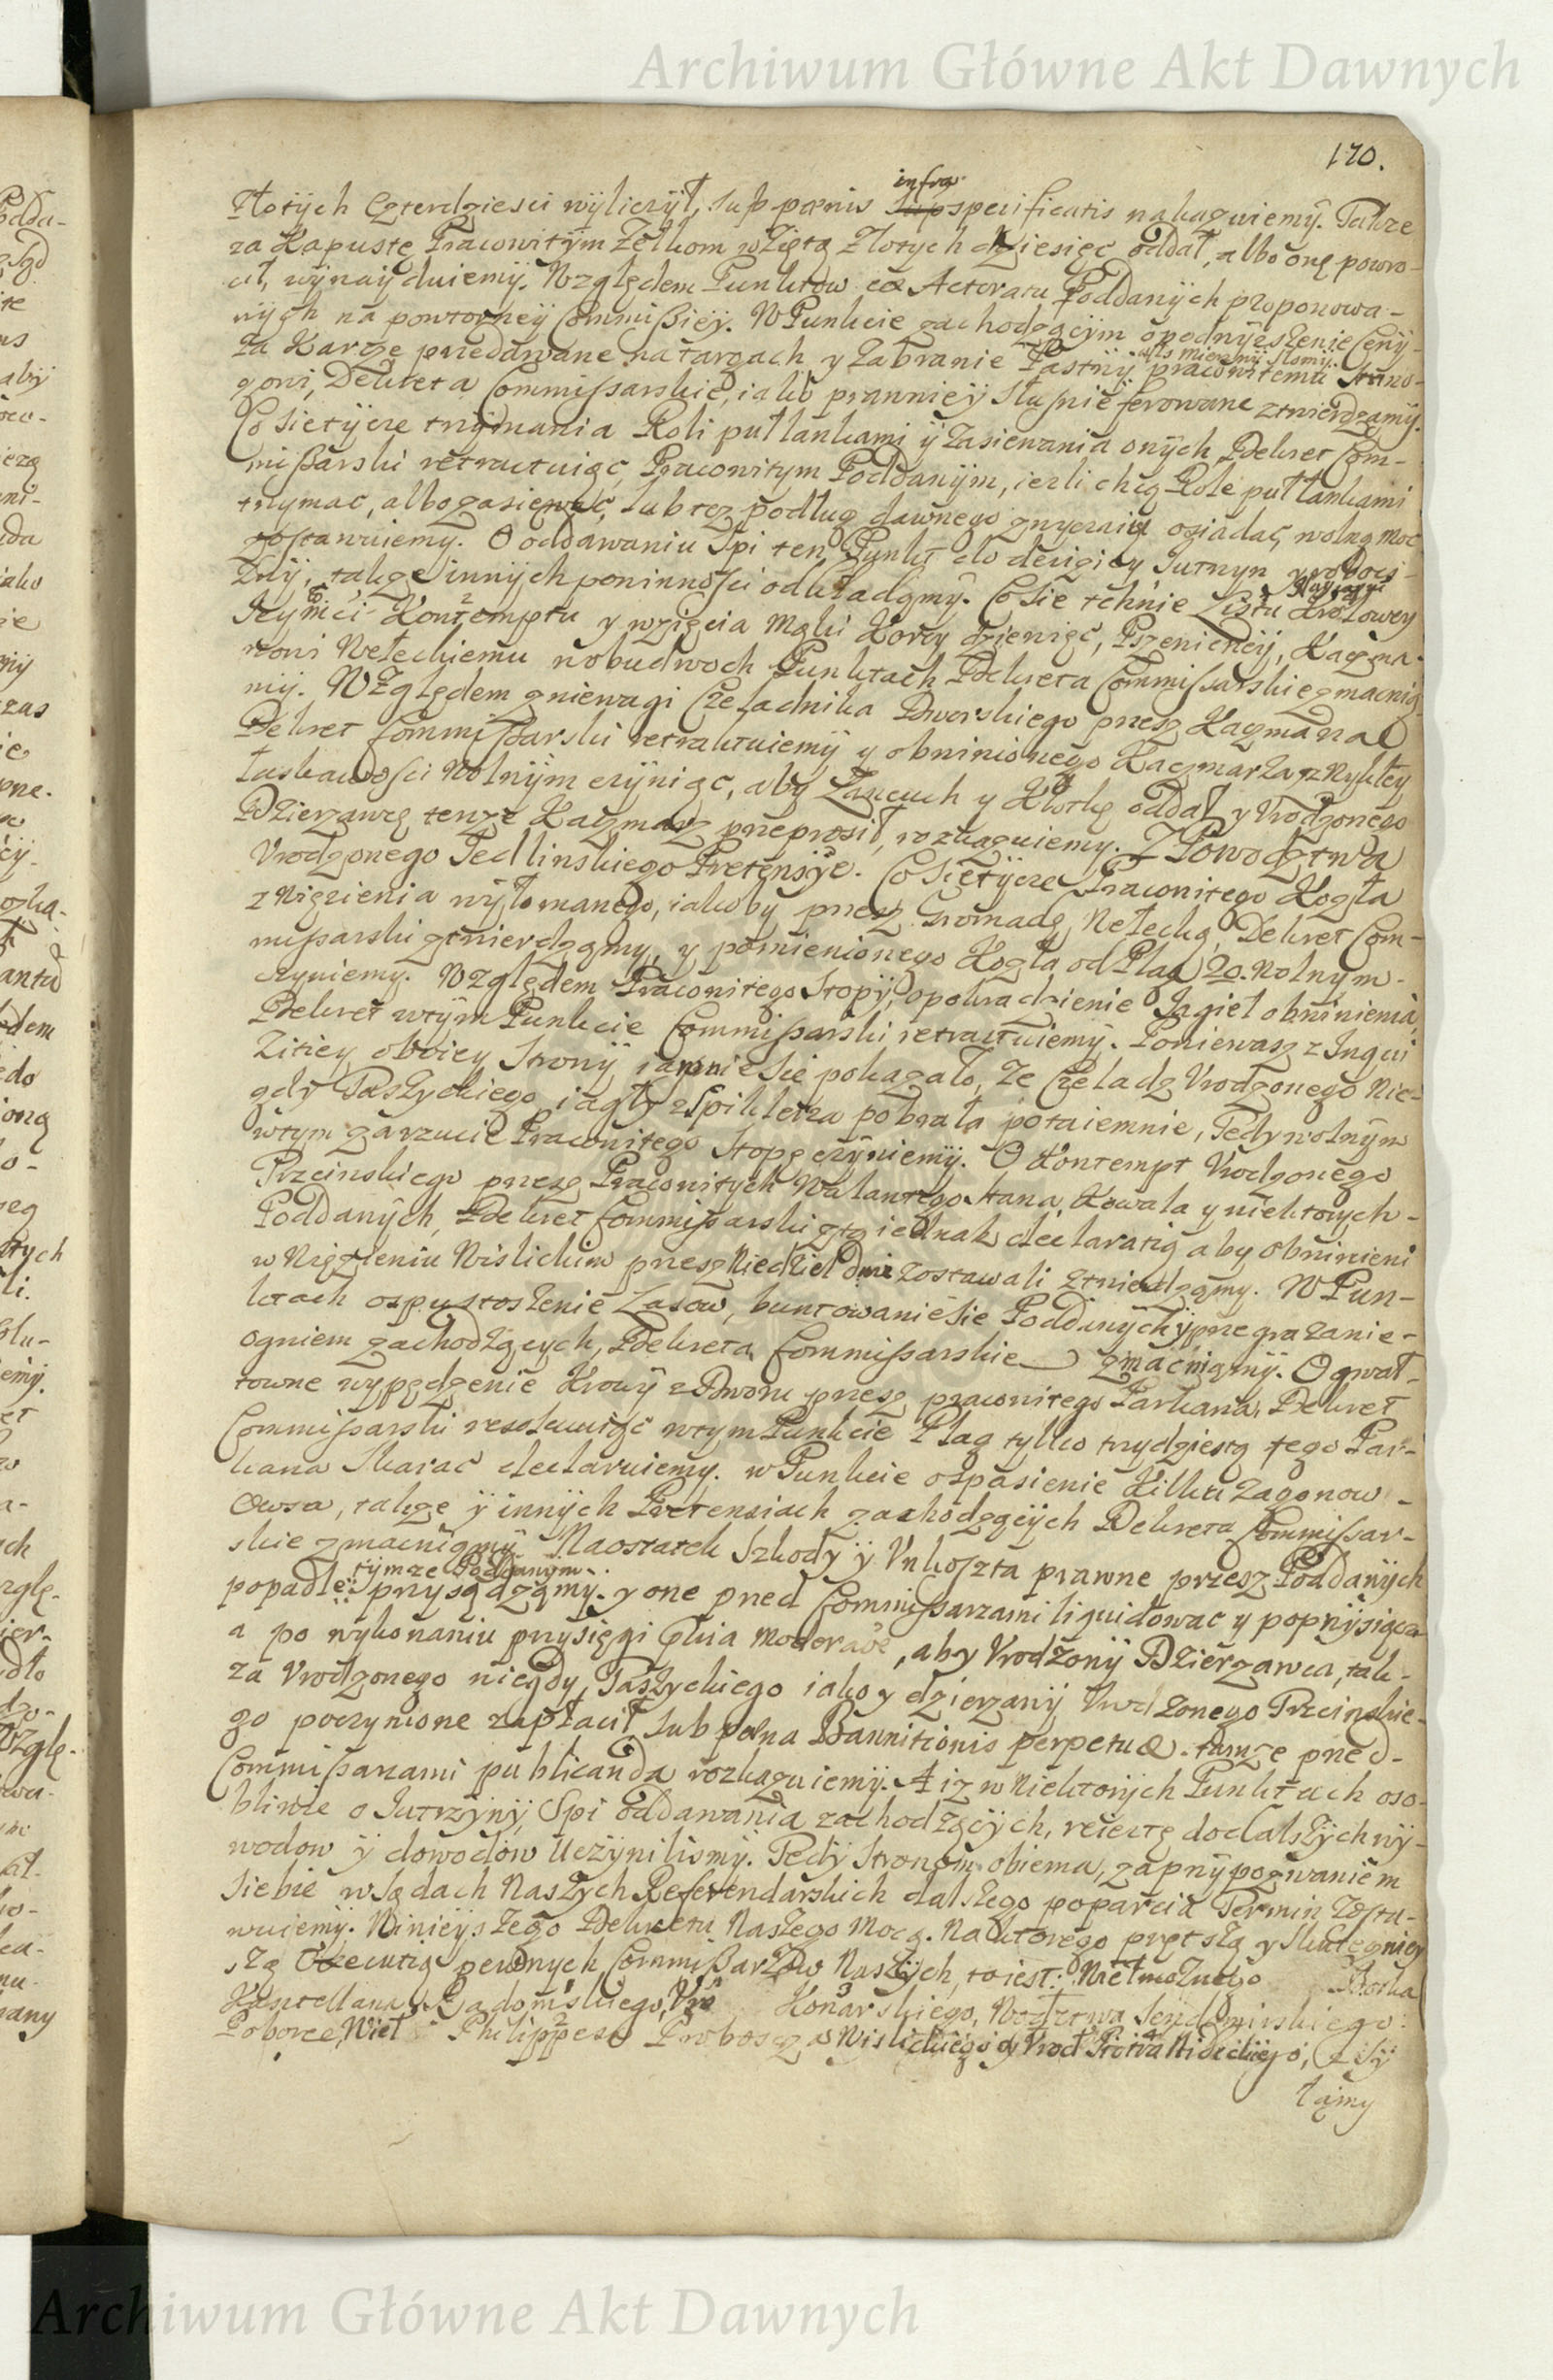 Archiwum Główne Akt Dawnych
170.
infra
złotych Czterdziesci wyliczył, sub pœnis specificatis nakazuiemÿ. Takze
za Kapustę Pracowitÿm Zelkom wziętą Złotych dziesięc oddał, albo onę powro-
cił, wÿnaÿduiemÿ. Względem Punktow ex Actoratu Poddanÿch proponowa-
nÿch na powtorneÿ CommißieŸ. W Punkcie zachodzącÿm o podnÿeszenie Cenÿ
za Karze przedawane na targach y zabranie Pastnÿ pracowitemu
gowi, Dekreta Commissarskie, iako prawnieÿ słusznie ferowane ztwierdzamÿ.
Co sie tÿcze trzÿmania Roli puł łankami ÿ zasiewania onÿch, Dekret Com-
mißarski retractuiąc, Pracowitym Poddanÿm, iezli chcą Role puł łankami
trzymac, albo zasiewac, lub tez podług dawnego zwyczaiu osiadac, wolną moc
zostawuiemy. O oddawaniu Spi ten Punkt do decizicy Jutrzyn y roboci-
znÿ, takze innÿch powinnosci odkładamÿ. Co sie tchnie Listu Krolowey
Jeymci Kontemptu y wzięcia Mąki Korcy dziewięc, Pszeniczneÿ, Kaczma-
rowi Wełeckiemu w obudwoch Punktach Dekreta Commissarskie zmacnia-
mÿ. Względem zniewagi Czeladnika Dworskiego przez Kaczmarza
Dekret Commissarski retraktuiemÿ y obwinionego Kaczmarza z Nykłey
łaskawosci Wolnÿm czÿniąc, aby Łancuch y Kłotkę oddał y Urodzonego
Dzierzawcę tenze Kaczmarz przeprosił, rozkazuiemy. Z Powodztwa
Urodzonego Jedlinskiego Pretensÿe. Co Sie tÿcze Pracowitego Kozła
z Więzienia wÿłomanego, iakoby przez Gromadę Wełecką, Dekret Com-
mißarski ztwierdzamy, y pomienionego Kozła od Plag 20. Wolnym
czyniemy. Względem Pracowitego Stopÿ, o pokradzienie Jagieł obwinienia,
Dekret wtÿm Punkcie Commissarski retractuiemÿ. Poniewasz z Inqui
Zitiey oboiey Stronÿ iawnie sie pokazało, ze Czeladz Urodzonego Nie-
gdy Paszyckiego iagły z Spiklerza pobrała potaiemnie, Tedy wolnÿm
wtym zarzucie Pracowitego Stopę czÿniemÿ. O Kontempt Urodzonego
Trzcinskiego przez Pracowitych Walantego Pana, Kowala y niektorych
Poddanÿch, Dekret Commissarski ztą iednak declaratią aby obwinieni
w Więzieniu Wislickim przez Niedziel dwie zostawali ztwierdzamy. W Pun-
ktach o spustoszenie Lasow, buntowanie sie Poddanÿch ÿ przegrazanie
ogniem zachodzących, Dekreta Commissarskie zmacniamÿ. O gwał-
towne wypędzenie Krowÿ z Dworu przez pracowitego Parkana, Dekret
Commissarski resoluuiąc wtym Punkcie Plag tylko trzydziestą tego Par-
kana Skarac declaruiemy. w Punkcie o spasienie Kilku zagonow
Owsa, takze ÿ innÿch Pretensiach zachodzącÿch Dekreta Commissar-
skie zmacniamÿ. Naostatek Szkody ÿ Unkoszta prawne przesz Poddanÿch
tymze Poddanym
popadłe przysądzamÿ. y one przed Commissarzami liquidowac y poprzÿsiącz
a po wykonaniu przysięgi Qũia Moderacie, aby Urodzonÿ Dzierzawca, tak
za Urodzonego niegdy Paszyckiego iako y dzierzawÿ Urodzonego Trzcinskie-
go poczynione zapłacił sub pœna Bannitionis perpetuæ. tamze przed
Commissarzami publicanda rozkazuiemÿ. A iz w Niektorÿch Punktach oso-
bliwie o Jutrzÿnÿ, Spi oddawania zachodzącÿch, reiectę do dalszÿch wÿ-
wodow ÿ dowodow uczÿnilismÿ. Tedÿ Stronom obiema, za przÿpozwaniem
Siebie w Sądach Naszych Referendarskich dalszego poparcia Termin zosta-
wuiemÿ. Ninieÿszego Dekretu Naszego Mocą. Na ktorego prętszą y Skutecznieÿ
szą Executią pewnych Commißarzow Naszÿch, to iest: Wielmoznego Borka
Kasztellana Radomskiego, Uro Konarskiego, Wodztwa Sendomirskiego
Poborcę, Wiel Philippeso Proboszcza Wislickiego y Urod Piotra Nideckiego, zsÿ
łamy
Archiwum Główne Akt Dawnych